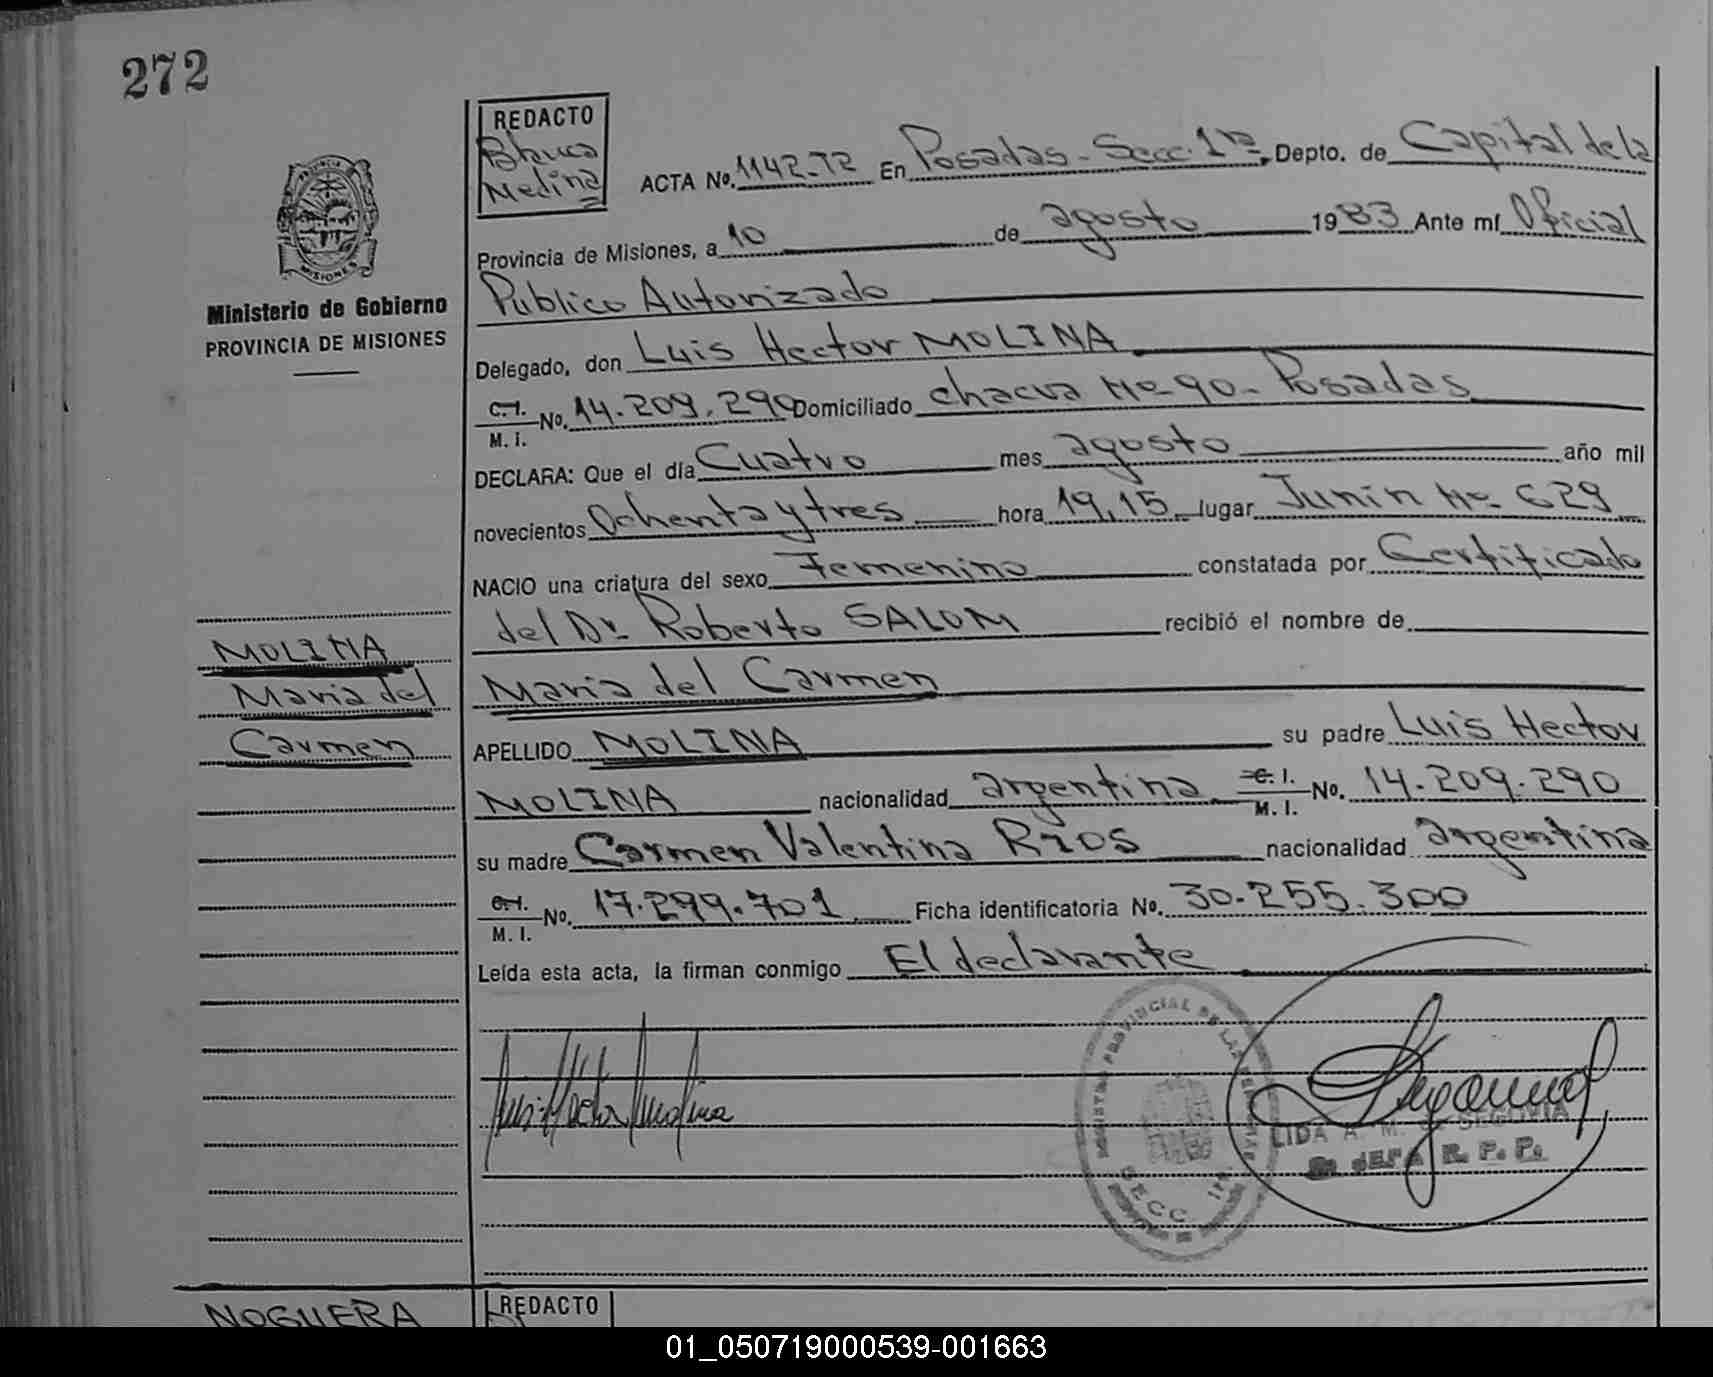 272
REDACTO
Blanca
Medina
ACTA No. 1142-T2 En Posadas - Secc. 1ra, Depto. de Capital de la
Provincia de Misiones, a 10 de agosto 1983 Ante mí Oficial
Publico Autorizado
Delegado, don Luis Hector MOLINA
C. I.
M. I. No. 14.209.290 Domiciliado chacra No 90 - Posadas
DECLARA: Que el día Cuatro mes agosto año mil
novecientos Ochenta y tres hora 19,15 lugar Junín No 629
NACIO una criatura del sexo Femenino constatada por Certificado
del Dr. Roberto SALOM recibió el nombre de
Maria del Carmen
APELLIDO MOLINA su padre Luis Hector
MOLINA nacionalidad argentina C. I.
M. I. No. 14.209.290
su madre Carmen Valentina RIOS nacionalidad argentina
C. I.
M. I. No. 17.299.701 Ficha identificatoria No. 30.255.300
Leída esta acta, la firman conmigo El declarante
Luis Héctor Molina
REGISTRO PROVINCIAL DE LAS PERSONAS
SECC. 1ra.
LIDA A. M. de SEGOVIA
JEFA R. P. P.
MISIONES
Ministerio de Gobierno
PROVINCIA DE MISIONES
MOLINA
Maria del
Carmen
NOGUERA
REDACTO
01_050719000539-001663